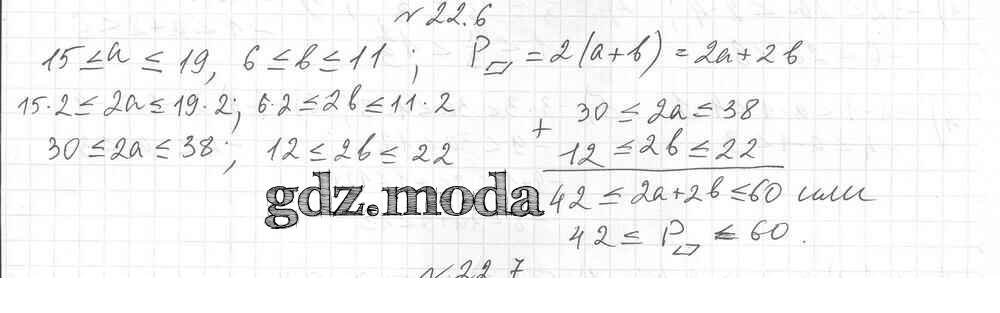 № 22.6
15 ≤ a ≤ 19, 6 ≤ b ≤ 11 ; P▱ = 2(a+b) = 2a+2b
15·2 ≤ 2a ≤ 19·2; 6·2 ≤ 2b ≤ 11·2
30 ≤ 2a ≤ 38; 12 ≤ 2b ≤ 22
+ 30 ≤ 2a ≤ 38
12 ≤ 2b ≤ 22
42 ≤ 2a+2b ≤ 60 или
42 ≤ P▱ ≤ 60.
gdz.moda
№ 22.7